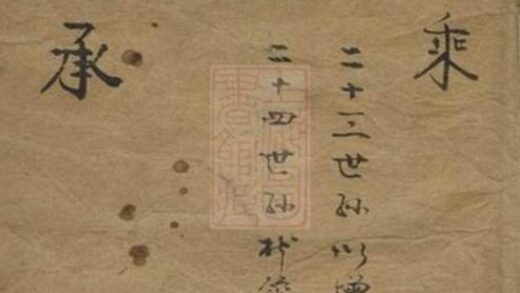 乘
二十三世孙以
二十四世孙
承